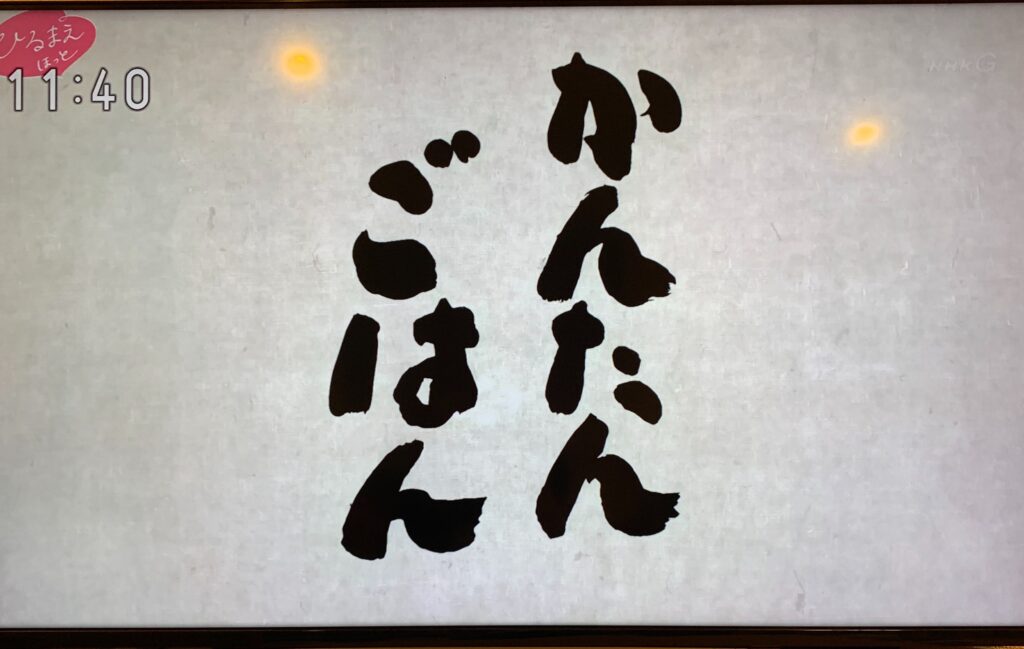 ひるまえ
ほっと
11:40
NHK G
かんたん
ごはん